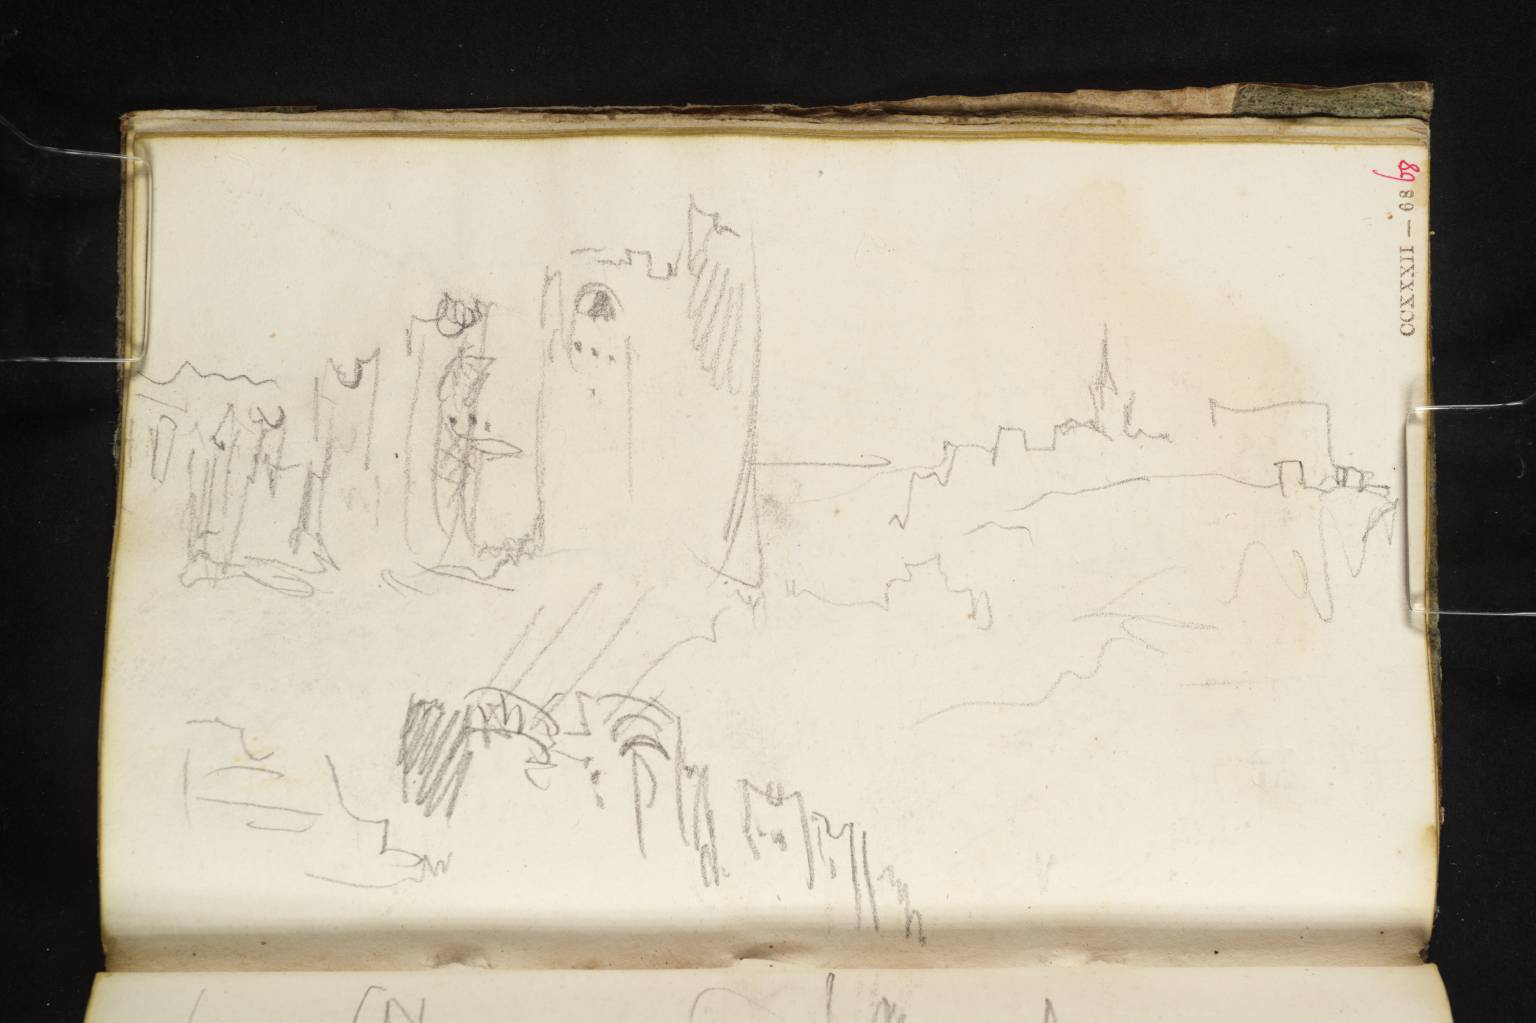 89
CCXXXII — 68